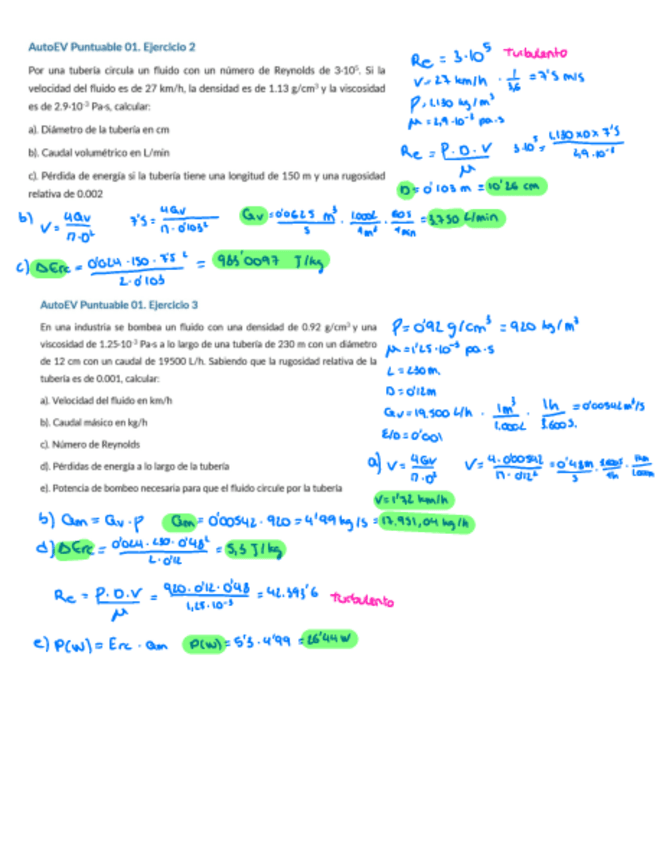 AutoEV Puntuable 01. Ejercicio 2
Por una tubería circula un fluido con un número de Reynolds de 3·10⁵. Si la
velocidad del fluido es de 27 km/h, la densidad es de 1.13 g/cm³ y la viscosidad
es de 2.9·10⁻³ Pa·s, calcular:
a). Diámetro de la tubería en cm
b). Caudal volumétrico en L/min
c). Pérdida de energía si la tubería tiene una longitud de 150 m y una rugosidad
relativa de 0.002
Re = 3·10⁵ Turbulento
V = 27 km/h · 1/3,6 = 7'5 m/s
ρ = 1.130 kg/m³
μ = 2,9·10⁻³ pa·s
Re = ρ·D·V/μ 3·10⁵ = 1,130 x D x 7'5/2,9·10⁻³
D = 0'103 m = 10'26 cm
b) V = 4Qv/π·D² 7'5 = 4Qv/π·0'103² Qv = 0'0625 m³/s · 1000L/1m³ · 60s/1min = 3.750 L/min
c) ΔErc = 0'024·150·7'5²/2·0'103 = 983'0097 J/kg
AutoEV Puntuable 01. Ejercicio 3
En una industria se bombea un fluido con una densidad de 0.92 g/cm³ y una
viscosidad de 1.25·10⁻³ Pa·s a lo largo de una tubería de 230 m con un diámetro
de 12 cm con un caudal de 19500 L/h. Sabiendo que la rugosidad relativa de la
tubería es de 0.001, calcular:
a). Velocidad del fluido en km/h
b). Caudal másico en kg/h
c). Número de Reynolds
d). Pérdidas de energía a lo largo de la tubería
e). Potencia de bombeo necesaria para que el fluido circule por la tubería
ρ = 0'92 g/cm³ = 920 kg/m³
μ = 1'25·10⁻³ pa·s
L = 230 m.
D = 0'12m
Qv = 19.500 L/h · 1m³/1.000L · 1h/3.600s. = 0'00542 m³/s
ε/D = 0'001
a) V = 4Qv/π·D² V = 4·0'00542/π·0'12² = 0'48m/s · 3600s/1h · 1km/1.000m
V = 1'72 km/h
b) Qm = Qv·ρ Qm = 0'00542·920 = 4'99 kg/s = 17.951,04 kg/h
d) ΔErc = 0'024·230·0'48²/2·0'12 = 5,3 J/kg
Re = ρ·D·V/μ = 920·0'12·0'48/1,25·10⁻³ = 42.393'6 Turbulento
e) P(W) = Erc · Qm P(W) = 5'3·4'99 = 26'44 W